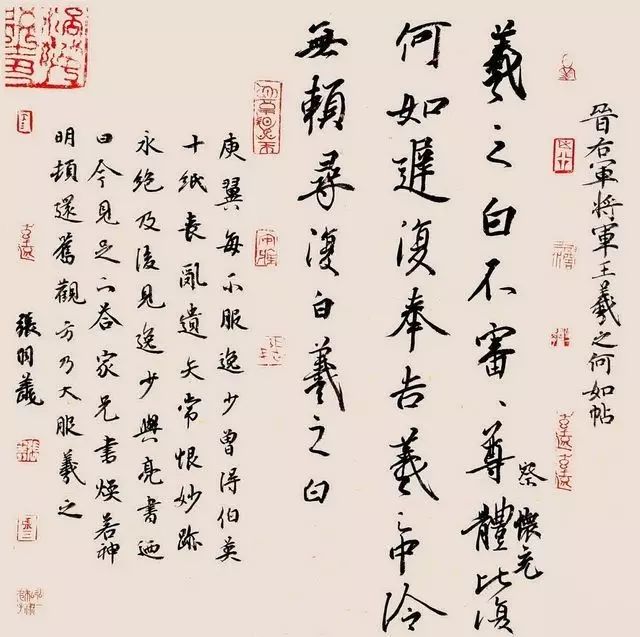 晉右軍將軍王羲之何如帖
羲之白不審、尊體比復
懷充
何如遲復奉告羲之中冷
無賴尋復白羲之白
庾翼每不服逸少曾得伯英
十紙喪亂遺失常恨妙跡
永絕及後見逸少與亮書迺
曰今見足下答家兄書煥若神
明頓還舊觀方乃大服羲之
張